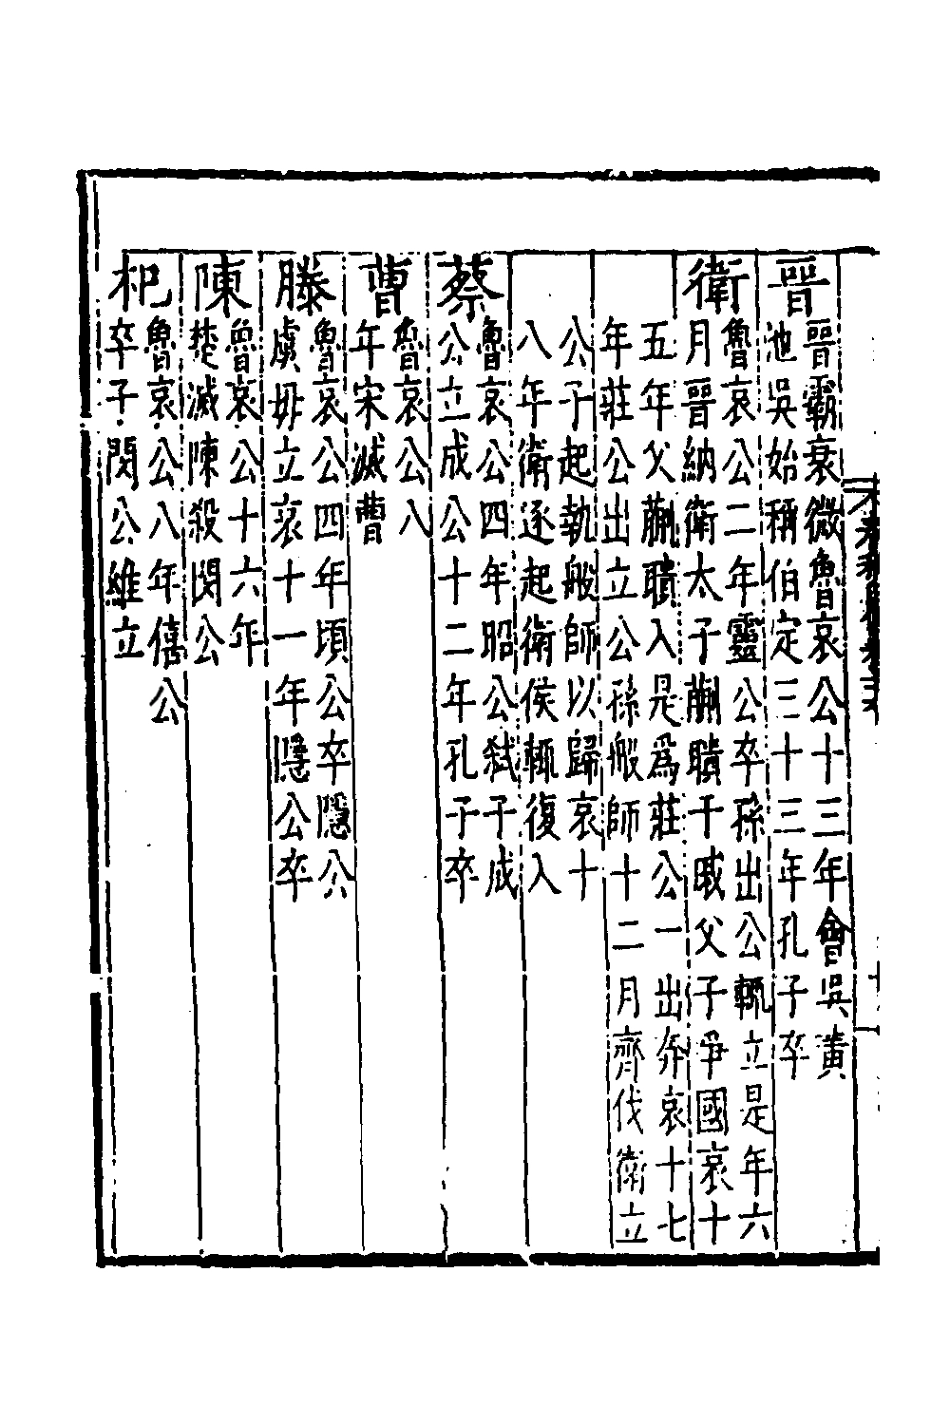 晉
晉霸衰微魯哀公十三年會吳黃
池吳始稱伯定三十三年孔子卒
衛
魯哀公二年靈公卒孫出公輒立是年六
月晉納衛太子蒯聵于戚父子爭國哀十
五年父蒯聵入是爲莊公一出奔哀十七
年莊公出立公孫般師十二月齊伐衛立
公子起執般師以歸哀十
八年衛逐起衛侯輒復入
蔡
魯哀公四年昭公弒子成
公立成公十二年孔子卒
曹
魯哀公八
年宋滅曹
滕
魯哀公四年頃公卒隱公
虞毋立哀十一年隱公卒
陳
魯哀公十六年
楚滅陳殺閔公
杞
魯哀公八年僖公
卒子閔公維立